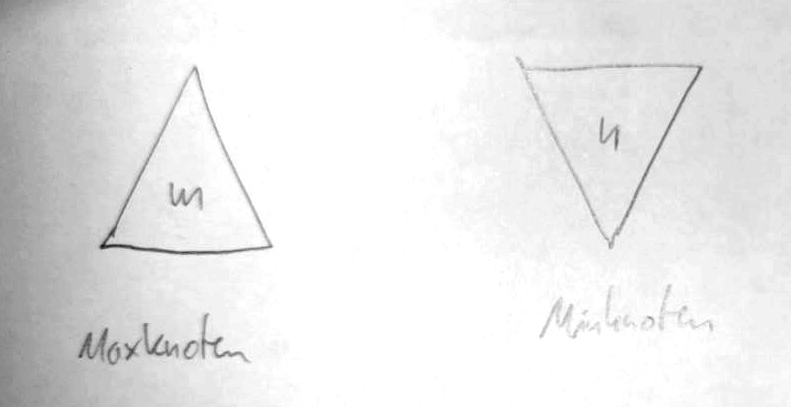 m
n
Maxknoten
Minknoten